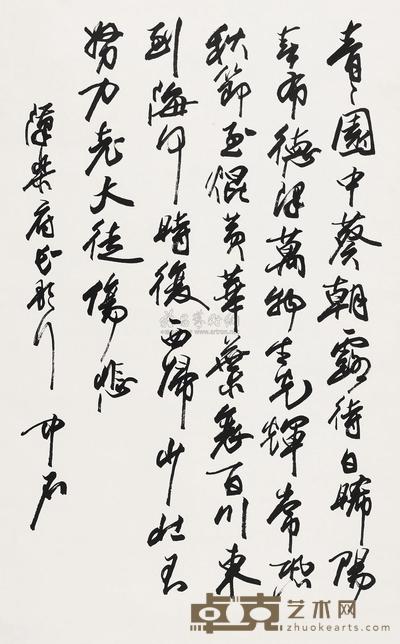 青〻園中葵朝露待日晞陽
春布德澤萬物生光輝常恐
秋節至焜黃華葉衰百川東
到海何時復西歸少壯不
努力老大徒傷悲
漢樂府長歌行 中石
卓克艺术网
zhuokearts.com